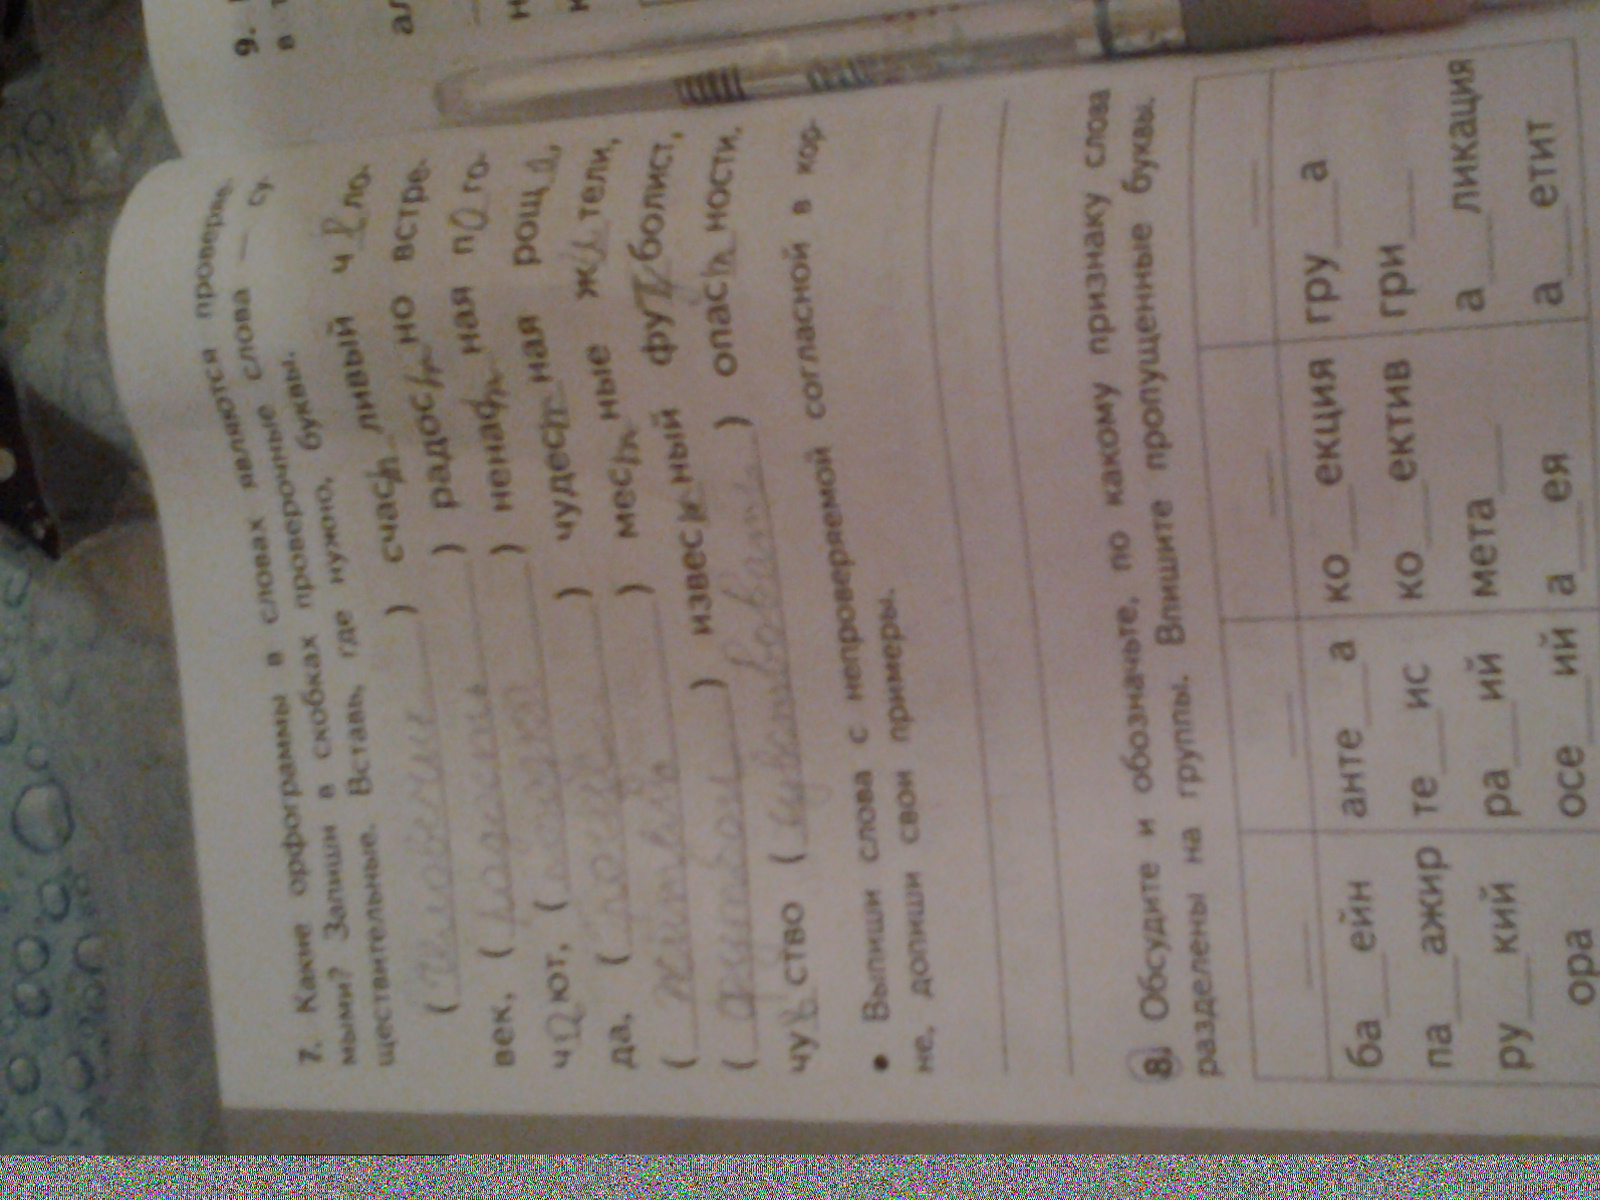 9.
в
7. Какие орфограммы в словах являются проверяе-
мыми? Запиши в скобках проверочные слова — су-
ществительные. Вставь, где нужно, буквы.
( человечие ) счастливый чело-
век, ( радость ) радостно встре-
чают, ( ) ненастная пого-
да, ( ) чудесная роща,
( житель ) местные жители,
( ) известный футболист,
чувство ( ) опасности.
• Выпиши слова с непроверяемой согласной в кор-
не, допиши свои примеры.
8. Обсудите и обозначьте, по какому признаку слова
разделены на группы. Впишите пропущенные буквы.
ба__ейн анте__а ко__екция гру__а
па__ажир те__ис ко__ектив гри__
ру__кий ра__ий мета__ а__ликация
ора осе__ий а__ея а__етит